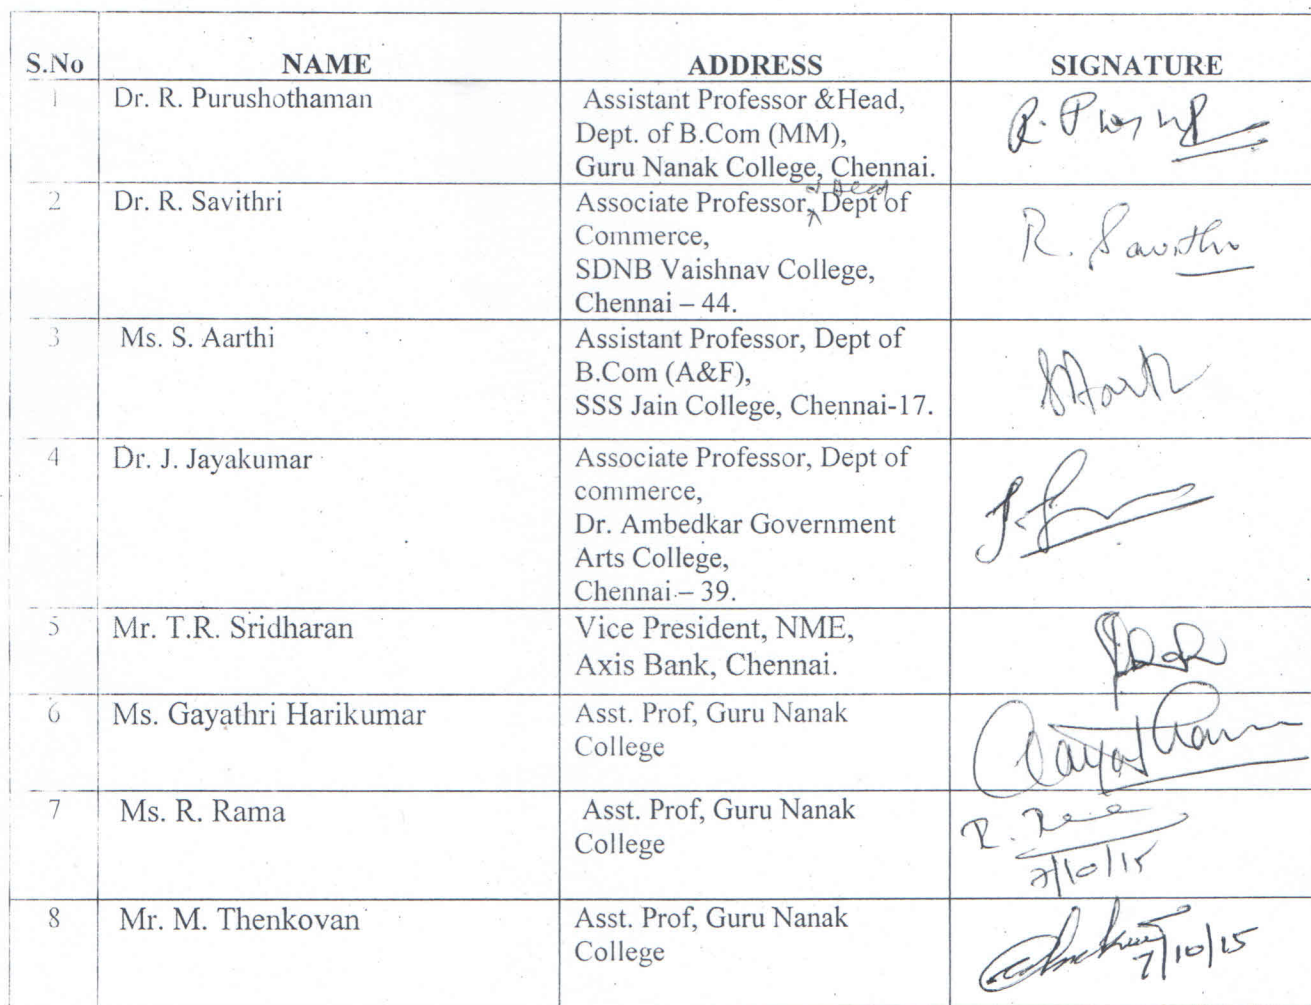 S.No NAME ADDRESS SIGNATURE
1 Dr. R. Purushothaman Assistant Professor &Head,
Dept. of B.Com (MM),
Guru Nanak College, Chennai.
2 Dr. R. Savithri Associate Professor, & Head Dept of
Commerce,
SDNB Vaishnav College,
Chennai – 44.
R. Savithri
3 Ms. S. Aarthi Assistant Professor, Dept of
B.Com (A&F),
SSS Jain College, Chennai-17.
SAarthi
4 Dr. J. Jayakumar Associate Professor, Dept of
commerce,
Dr. Ambedkar Government
Arts College,
Chennai – 39.
5 Mr. T.R. Sridharan Vice President, NME,
Axis Bank, Chennai.
6 Ms. Gayathri Harikumar Asst. Prof, Guru Nanak
College
7 Ms. R. Rama Asst. Prof, Guru Nanak
College
7/10/15
8 Mr. M. Thenkovan Asst. Prof, Guru Nanak
College
7/10/15